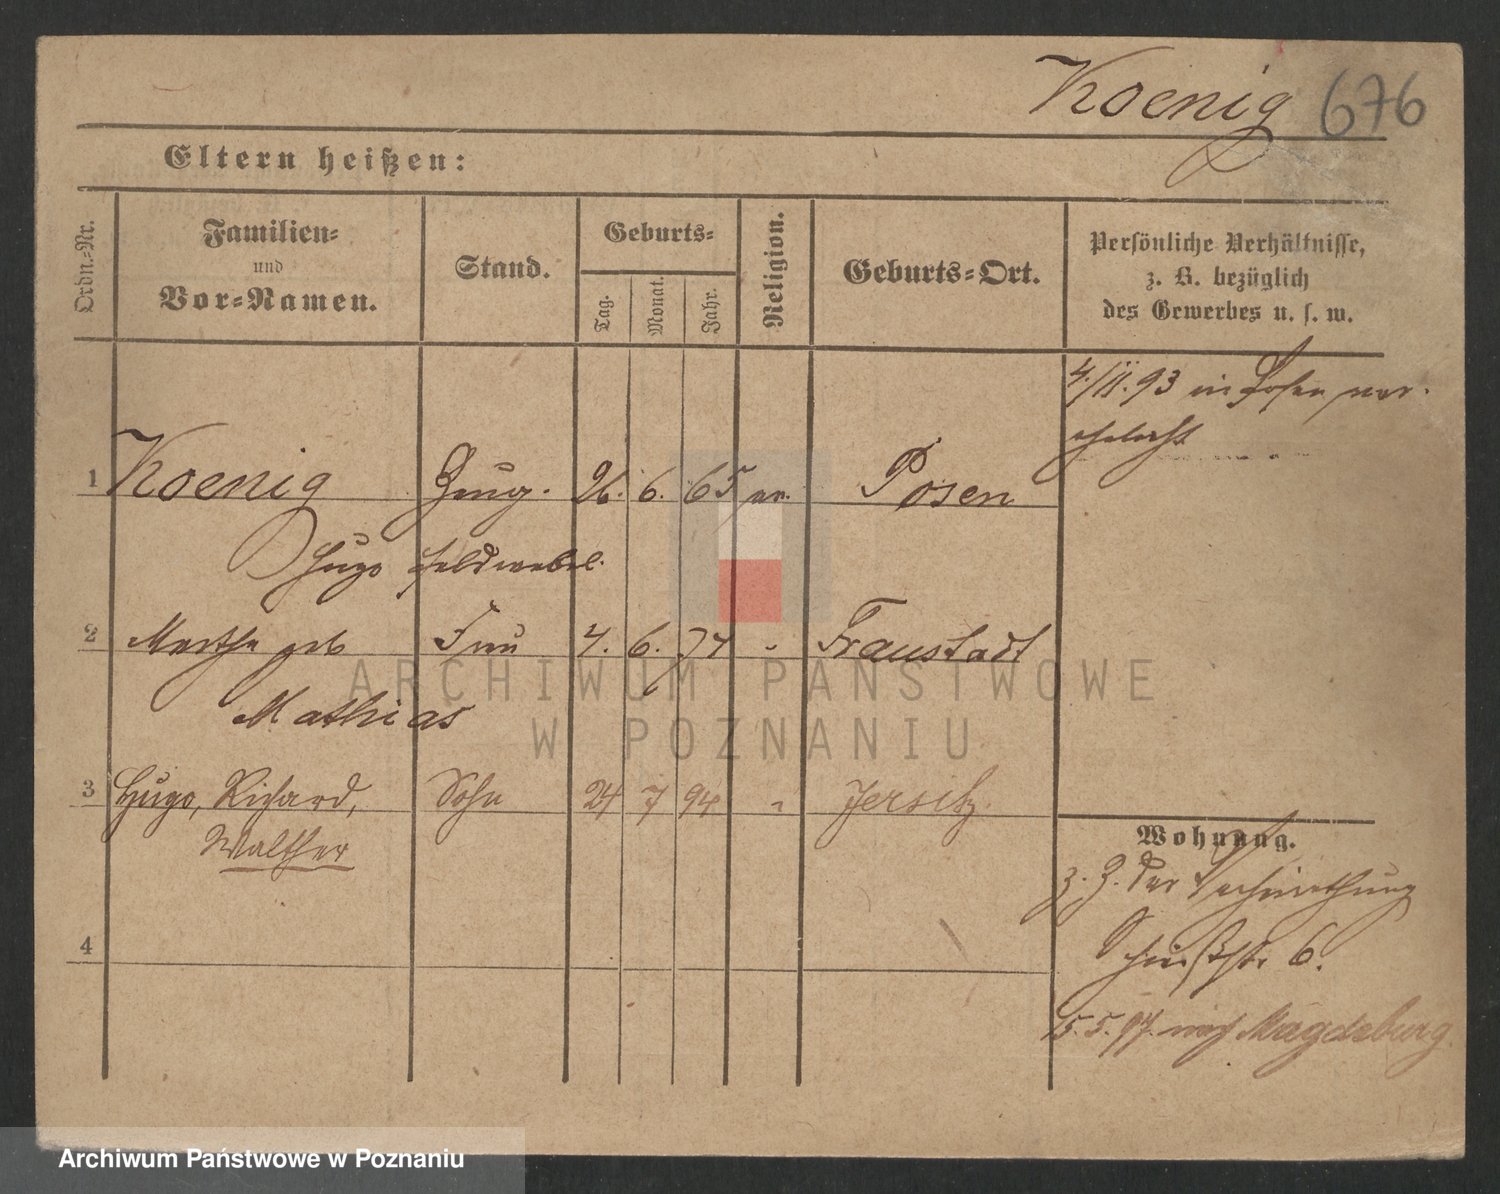 Koenig 676
Eltern heißen:
Ordn.-Nr.
Familien-
und
Vor-Namen.
Stand.
Geburts-
Tag.
Monat.
Jahr.
Religion.
Geburts-Ort.
Persönliche Verhältnisse,
z. B. bezüglich
des Gewerbes u. s. w.
4./II. 93 in Posen ver-
ehelicht
1 Koenig 26. 6. 65 ev. Posen
Hugo Feldwebel.
2 Marthe geb Frau 4. 6. 74 " Fraustadt
Mathias
3 Hugo, Richard, Sohn 24 7 94 " Jersitz.
Walther
Wohnung.
z. Z. der
6.
4
15.5.97. nach Magdeburg
ARCHIWUM PAŃSTWOWE
W POZNANIU
Archiwum Państwowe w Poznaniu